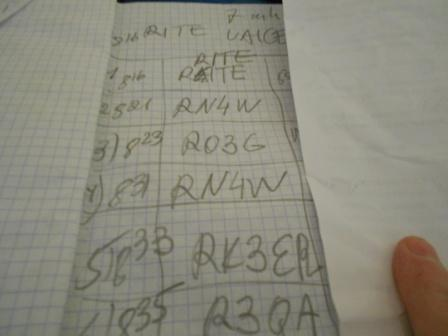 7 mh
816 RITE UA1CE
RITE
1 816 RAITE
2 821 RN4W
3) 823 RO3G
4) 831 RN4W
5) 833 RK3ER
835 R3QA